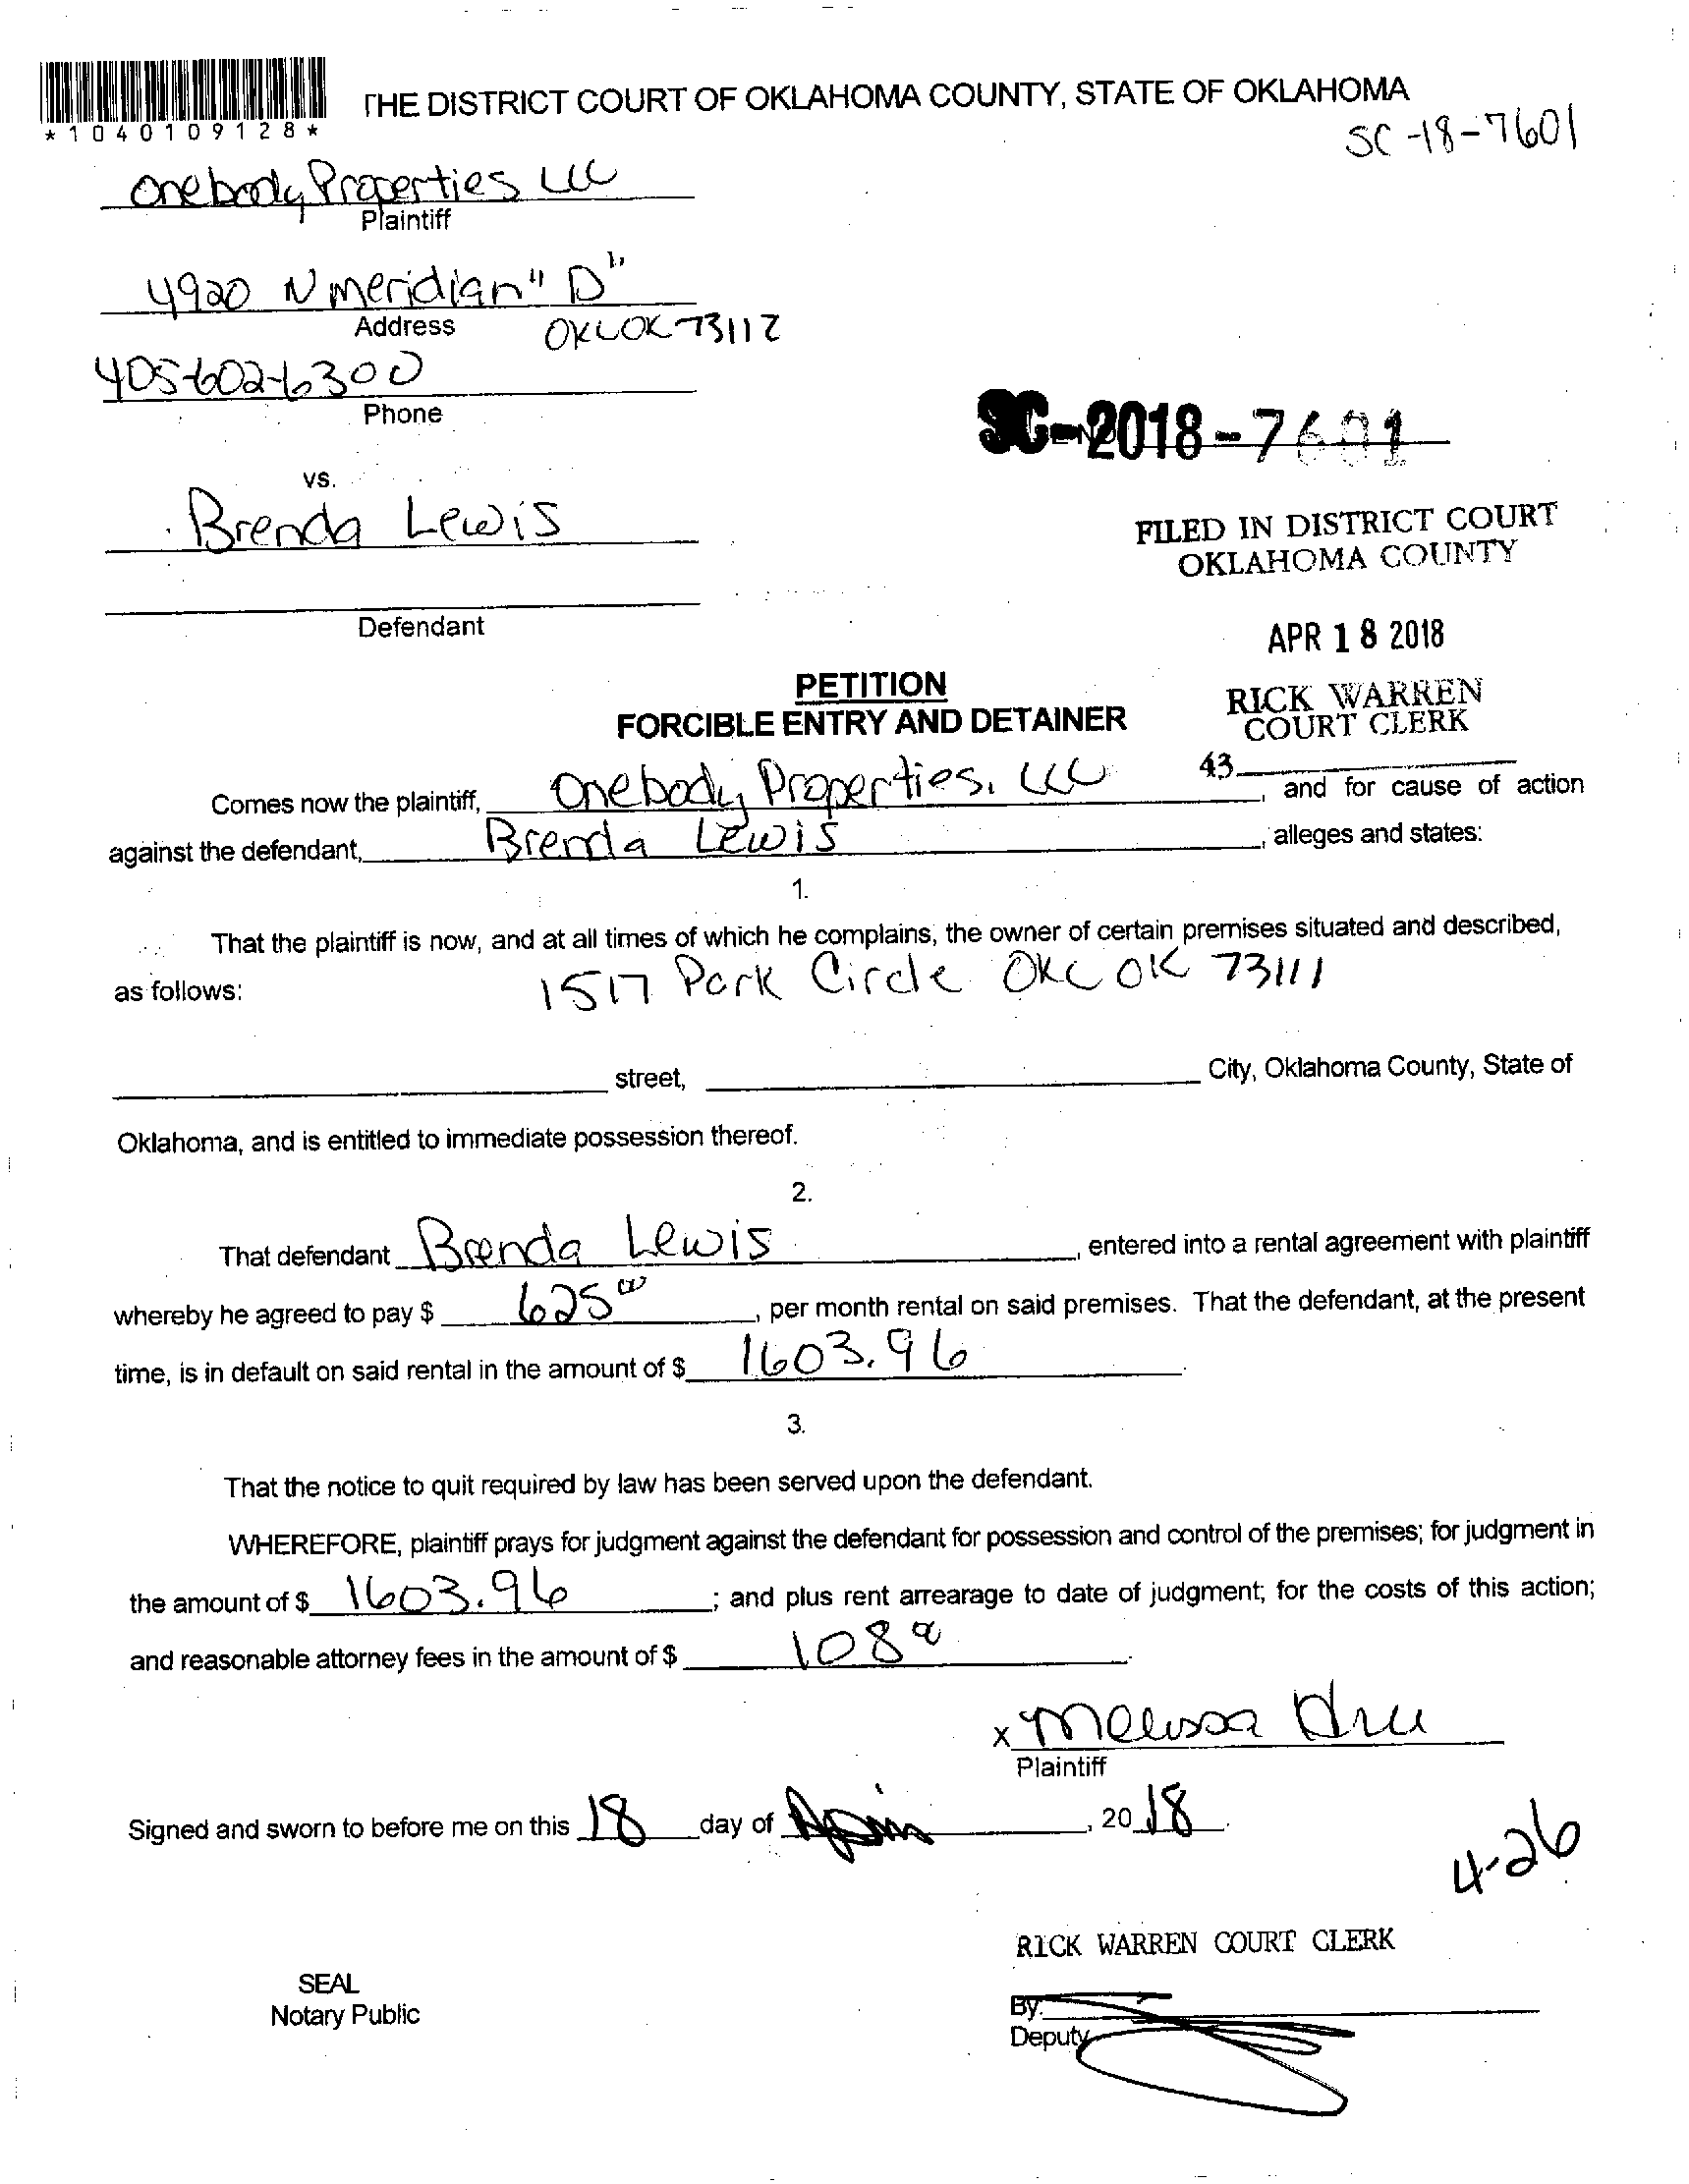 *1040109128*
THE DISTRICT COURT OF OKLAHOMA COUNTY, STATE OF OKLAHOMA
SC-18-7601
Onebody Properties LLC
Plaintiff
4920 N Meridian "D"
Address OKC OK 73112
405-602-6300
Phone
SC-2018-7601
vs.
Brenda Lewis
FILED IN DISTRICT COURT
OKLAHOMA COUNTY
Defendant
APR 18 2018
PETITION
FORCIBLE ENTRY AND DETAINER
RICK WARREN
COURT CLERK
43
Comes now the plaintiff, Onebody Properties, LLC, and for cause of action
against the defendant, Brenda Lewis, alleges and states:
1.
That the plaintiff is now, and at all times of which he complains, the owner of certain premises situated and described,
as follows: 1517 Park Circle OKC OK 73111
street, City, Oklahoma County, State of
Oklahoma, and is entitled to immediate possession thereof.
2.
That defendant Brenda Lewis, entered into a rental agreement with plaintiff
whereby he agreed to pay $ 625 00, per month rental on said premises. That the defendant, at the present
time, is in default on said rental in the amount of $ 1603.96.
3.
That the notice to quit required by law has been served upon the defendant.
WHEREFORE, plaintiff prays for judgment against the defendant for possession and control of the premises; for judgment in
the amount of $ 1603.96; and plus rent arrearage to date of judgment; for the costs of this action;
and reasonable attorney fees in the amount of $ 108.
x Melissa
Plaintiff
Signed and sworn to before me on this 18 day of, 20 18.
4-26
RICK WARREN COURT CLERK
SEAL
Notary Public
By:
Deputy